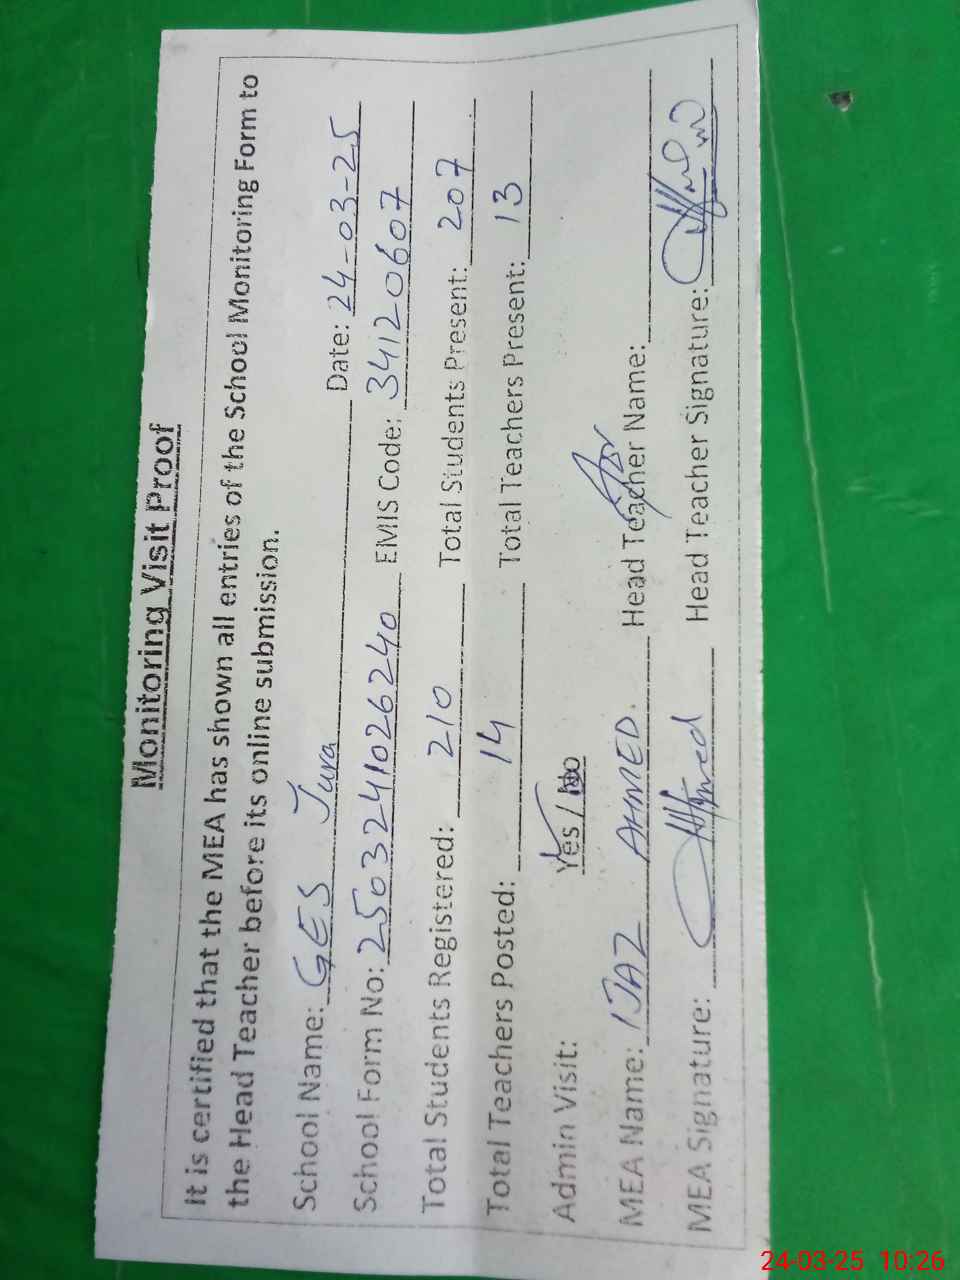 Monitoring Visit Proof
It is certified that the MEA has shown all entries of the School Monitoring Form to
the Head Teacher before its online submission.
School Name: GES Jura Date: 24-03-25
School Form No: 2503241026240 EMIS Code: 34120607
Total Students Registered: 210 Total Students Present: 207
Total Teachers Posted: 14 Total Teachers Present: 13
Admin Visit: Yes / No
MEA Name: IJAZ AHMED. Head Teacher Name:
MEA Signature: Head Teacher Signature:
24-03-25 10:26